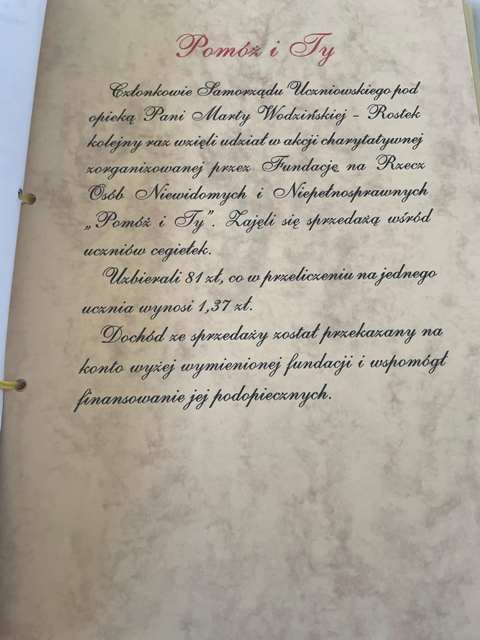 Pomóż i Ty
Członkowie Samorządu Uczniowskiego pod
opieką Pani Marty Wodzińskiej - Rostek
kolejny raz wzięli udział w akcji charytatywnej
zorganizowanej przez Fundację na Rzecz
Osób Niewidomych i Niepełnosprawnych
„Pomóż i Ty”. Zajęli się sprzedażą wśród
uczniów cegiełek.
Uzbierali 81 zł, co w przeliczeniu na jednego
ucznia wynosi 1,37 zł.
Dochód ze sprzedaży został przekazany na
konto wyżej wymienionej fundacji i wspomógł
finansowanie jej podopiecznych.